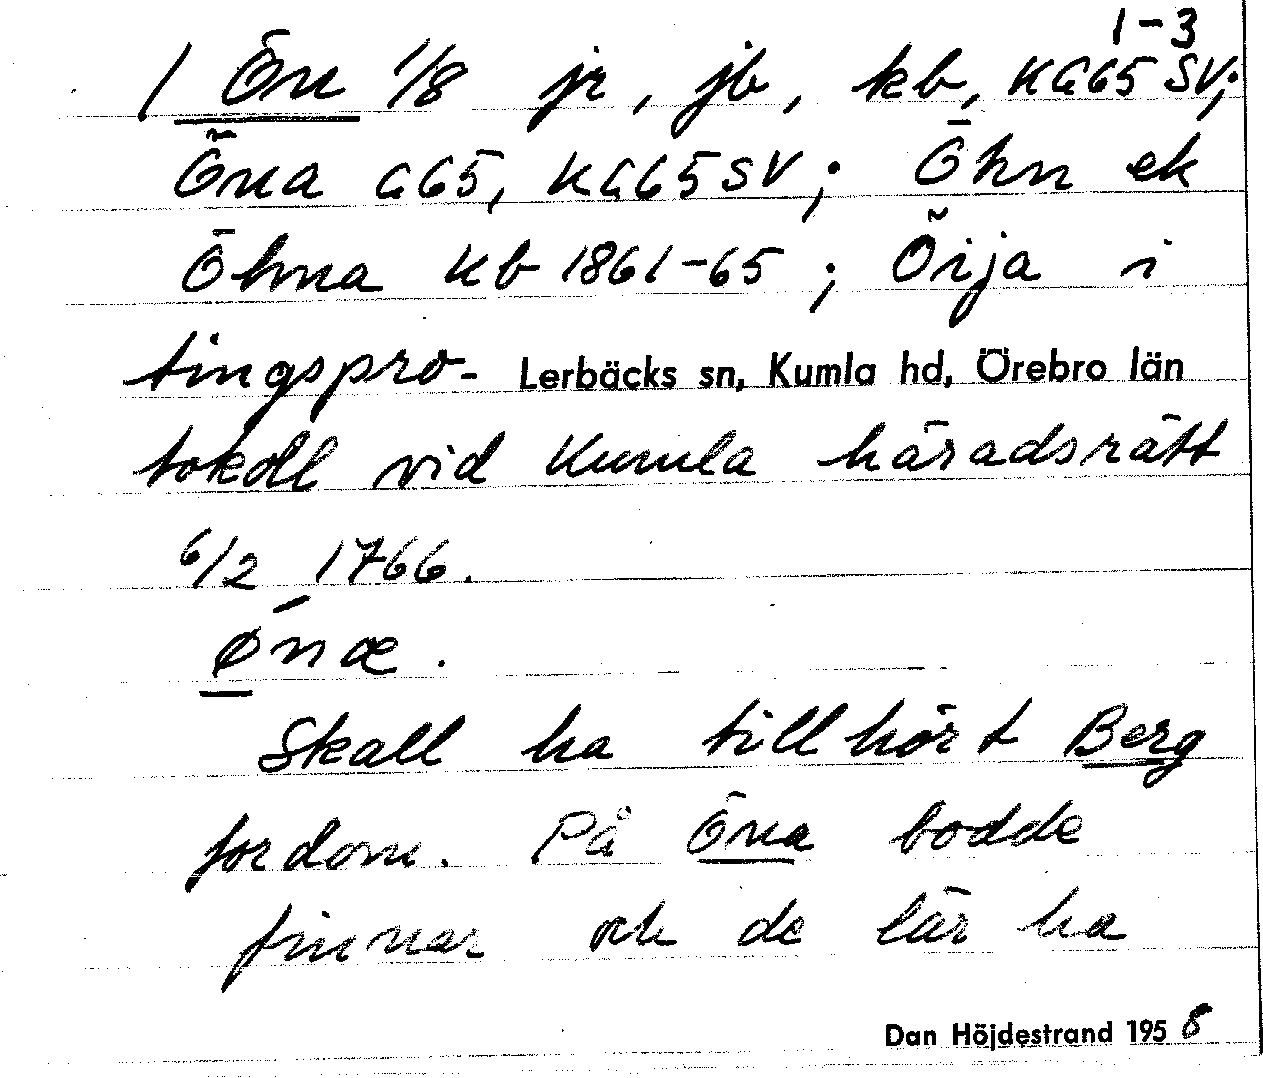 1-3
/ Ön 1/8 jr, jb, kb, KG65 SV;
Öna G65, KG65SV; Öhn ek
Öhna kb 1861-65; Öija i
tingspro- Lerbäcks sn, Kumla hd, Örebro län
tokoll vid Kumla häradsrätt
6/2 1766.
ǿnæ.
Skall ha tillhört Berg
fordom. På Öna bodde
finnar och de lär ha
Dan Höjdestrand 1958